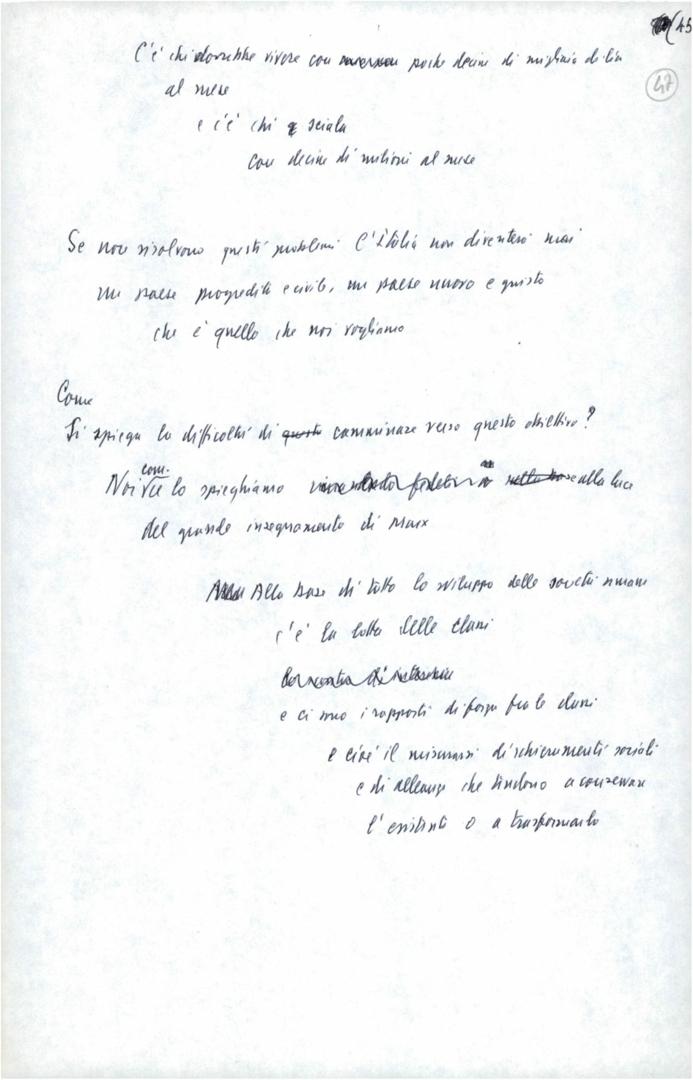 45
47
C'è chi dovrebbe vivere con poche decine di migliaia di lire
al mese
e c'è chi sciala
con decine di milioni al mese
Se non risolvono questi problemi l'Italia non diventerà mai
un paese progredito e civile, un paese nuovo e giusto
che è quello che noi vogliamo
Come
si spiega la difficoltà di questo camminare verso questo obiettivo?
com.
Noi lo spieghiamo alla luce
del grande insegnamento di Marx
Alla base di tutto lo sviluppo delle società umane
c'è la lotta delle classi
e ci sono i rapporti di forza fra le classi
e cioè il misurarsi di schieramenti sociali
e di alleanze che tendono a conservare
l'esistente o a trasformarlo